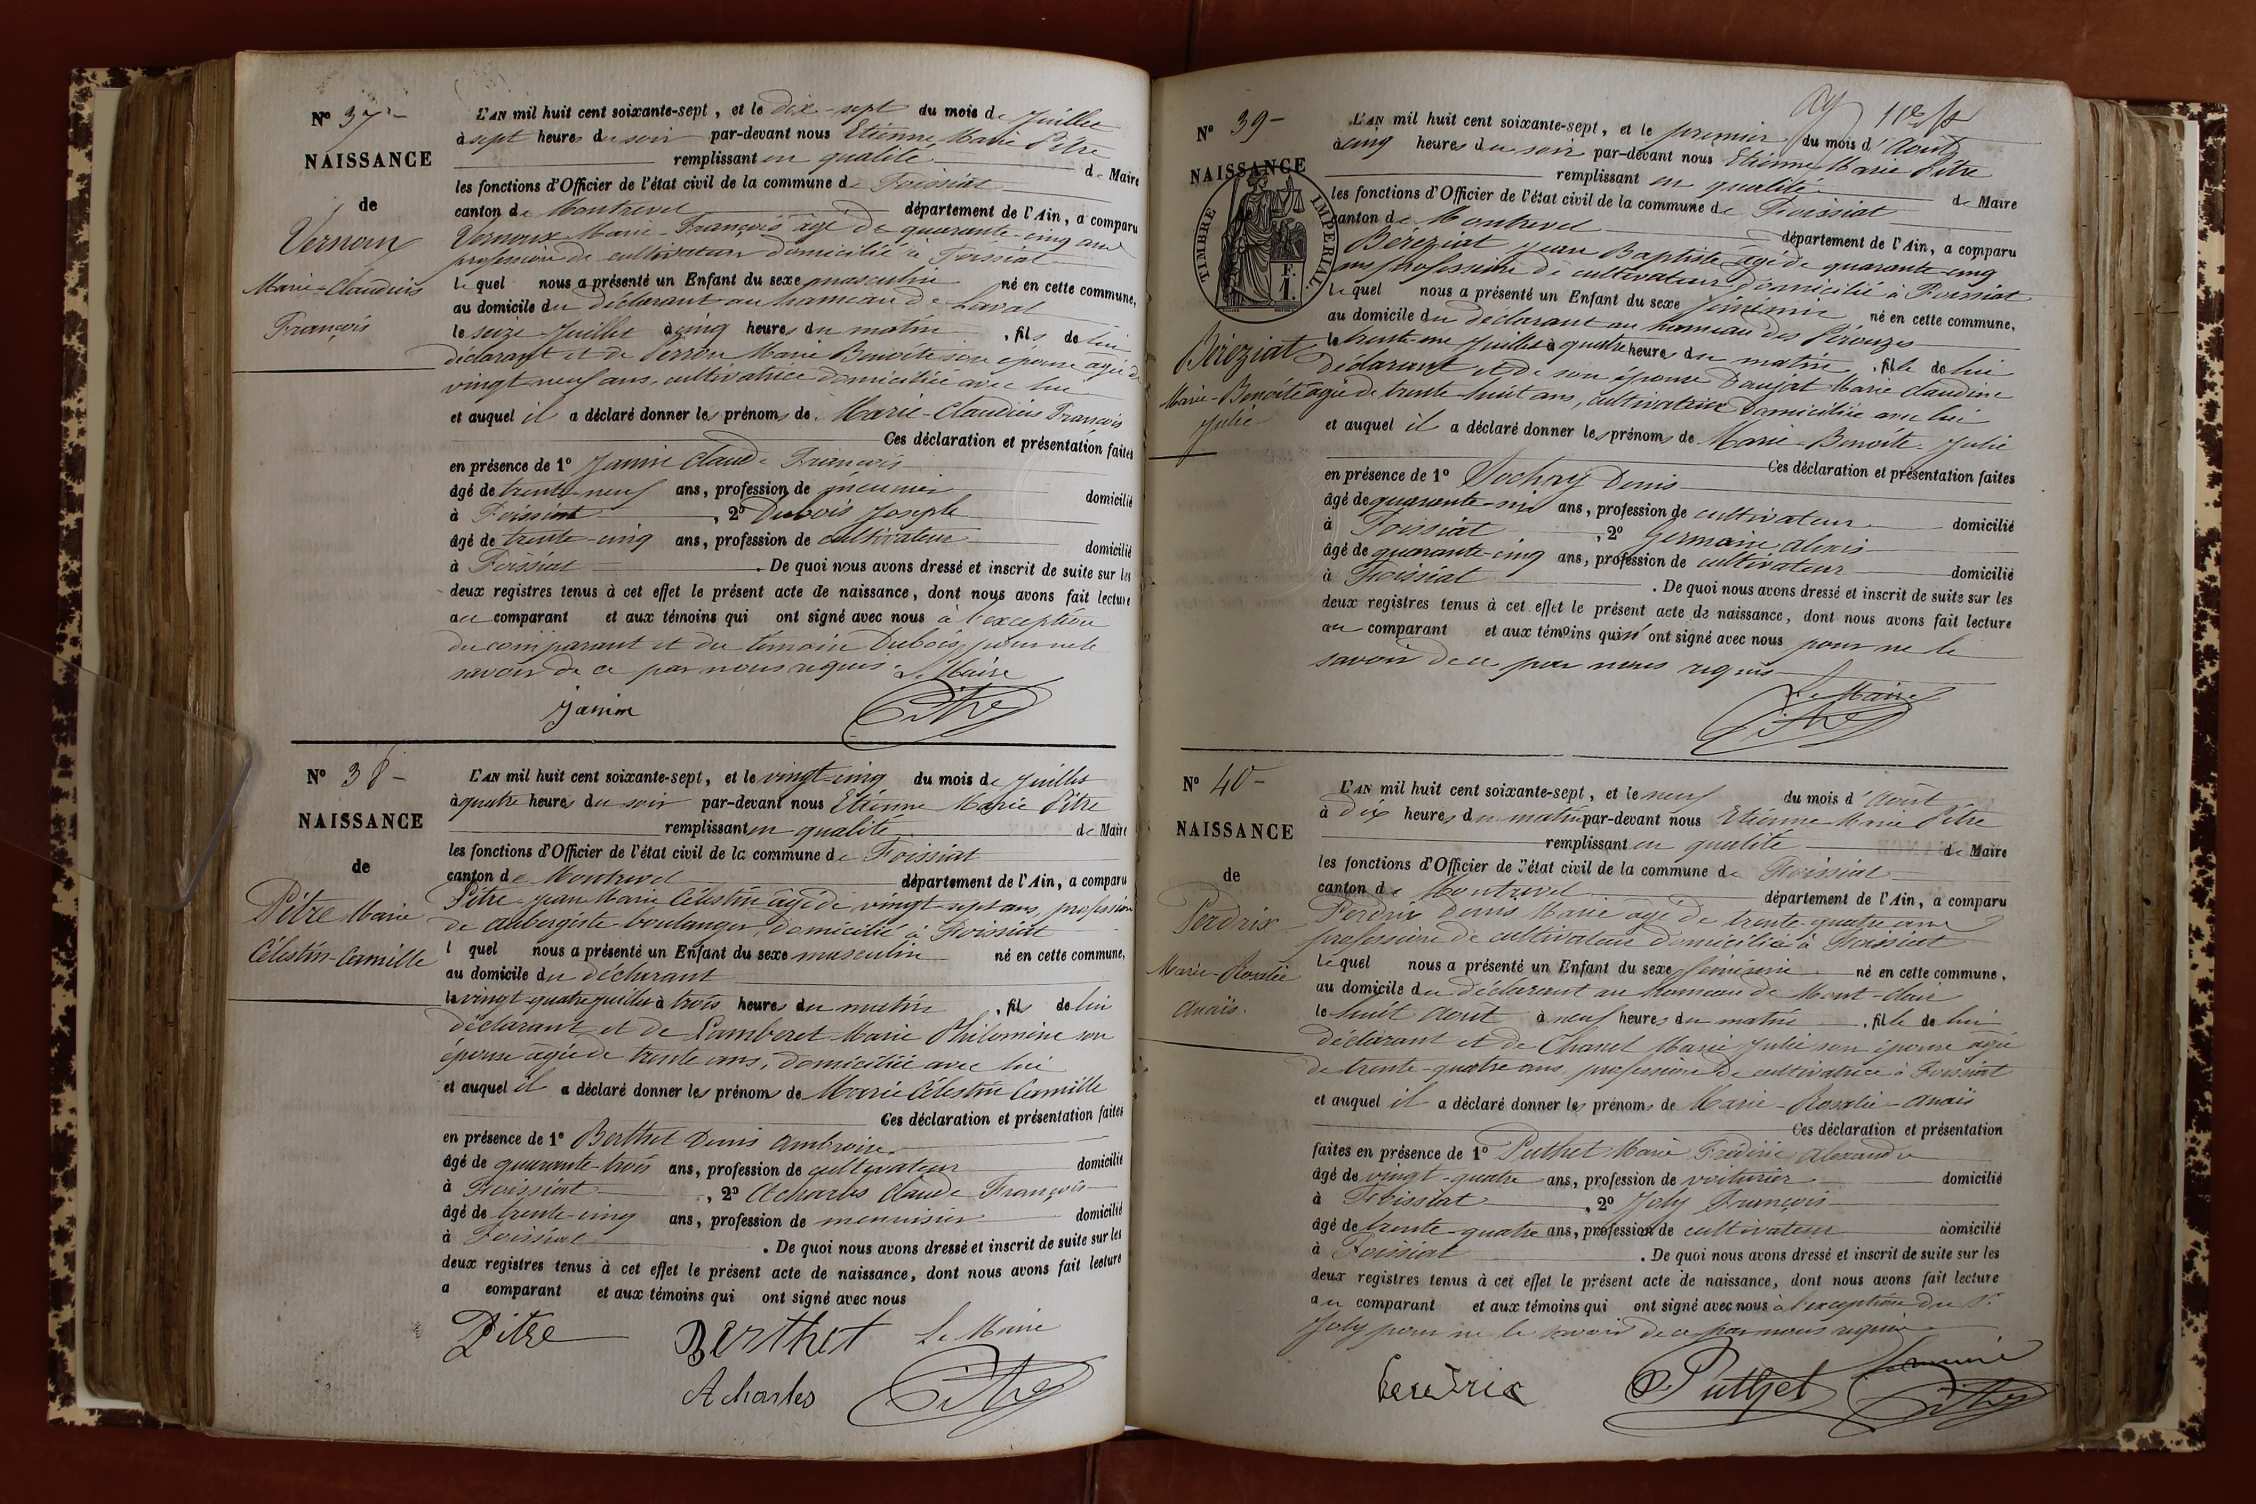 N° 37
NAISSANCE
de
Vernoux
Marie-Claudius
François
L'AN mil huit cent soixante-sept, et le dix-sept du mois de Juillet
à sept heures du soir par-devant nous Etienne Marie Pitre
remplissant en qualité de Maire
les fonctions d'Officier de l'état civil de la commune de Foissiat
canton de Montrevel département de l'Ain, a comparu
Vernoux Marie-François âgé de quarante-cinq ans
profession de cultivateur domicilié à Foissiat
Lequel nous a présenté un Enfant du sexe masculin né en cette commune,
au domicile du déclarant au hameau de Laval
le seize Juillet à cinq heures du matin, fils de lui
déclarant et de Perron Marie Benoite son épouse âgée de
vingt-neuf ans, cultivatrice domiciliée avec lui
et auquel il a déclaré donner les prénoms de Marie-Claudius François
Ces déclaration et présentation faites
en présence de 1° Janin Claude François
âgé de trente-neuf ans, profession de meunier domicilié
à Foissiat, 2° Dubois Joseph
âgé de trente-cinq ans, profession de cultivateur domicilié
à Foissiat. De quoi nous avons dressé et inscrit de suite sur les
deux registres tenus à cet effet le présent acte de naissance, dont nous avons fait lecture
au comparant et aux témoins qui ont signé avec nous à l'exception
du comparant et du témoin Dubois, pour ne le
savoir de ce par nous requis. Le Maire
Janin Pitre
N° 38
NAISSANCE
de
Pitre Marie
Célestin-Camille
L'AN mil huit cent soixante-sept, et le vingt-cinq du mois de Juillet
à quatre heures du soir par-devant nous Etienne Marie Pitre
remplissant en qualité de Maire
les fonctions d'Officier de l'état civil de la commune de Foissiat
canton de Montrevel département de l'Ain, a comparu
Pitre Jean Marie Célestin âgé de vingt-sept ans, profession
de aubergiste boulanger, domicilié à Foissiat
l quel nous a présenté un Enfant du sexe masculin né en cette commune,
au domicile du déclarant
le vingt-quatre juillet à trois heures du matin, fils de lui
déclarant et de Lamberet Marie Philomène son
épouse âgée de trente ans, domiciliée avec lui
et auquel il a déclaré donner les prénoms de Marie Célestin Camille
Ces déclaration et présentation faites
en présence de 1° Berthet Denis Ambroise
âgé de quarante-trois ans, profession de cultivateur domicilié
à Foissiat, 2° Acharles Claude François
âgé de trente-cinq ans, profession de menuisier domicilié
à Foissiat. De quoi nous avons dressé et inscrit de suite sur les
deux registres tenus à cet effet le présent acte de naissance, dont nous avons fait lecture
a comparant et aux témoins qui ont signé avec nous
Pitre Berthet Le Maire
Acharles Pitre
11e
N° 39
NAISSANCE
TIMBRE IMPERIAL
F. 1.
Béréziat
Marie-Benoite
Julie
L'AN mil huit cent soixante-sept, et le premier du mois d'Août
à cinq heures du soir par-devant nous Etienne Marie Pitre
remplissant en qualité de Maire
les fonctions d'Officier de l'état civil de la commune de Foissiat
canton de Montrevel département de l'Ain, a comparu
Béréziat Jean Baptiste âgé de quarante-cinq
ans profession de cultivateur domicilié à Foissiat
Lequel nous a présenté un Enfant du sexe féminin né en cette commune,
au domicile du déclarant au hameau des Pérouzes
le trente-un Juillet à quatre heures du matin, fille de lui
déclarant et de son épouse Daujat Marie Claudine
âgée de trente-huit ans, cultivatrice domiciliée avec lui
et auquel il a déclaré donner les prénoms de Marie-Benoite-Julie
Ces déclaration et présentation faites
en présence de 1° Sochay Denis
âgé de quarante-six ans, profession de cultivateur domicilié
à Foissiat, 2° Germain Alexis
âgé de quarante-cinq ans, profession de cultivateur domicilié
à Foissiat. De quoi nous avons dressé et inscrit de suite sur les
deux registres tenus à cet effet le présent acte de naissance, dont nous avons fait lecture
au comparant et aux témoins qui n'ont signé avec nous pour ne le
savoir de ce par nous requis
Le Maire
Pitre
N° 40
NAISSANCE
de
Perdrix
Marie-Rosalie
Anaïs.
L'AN mil huit cent soixante-sept, et le neuf du mois d'Août
à dix heures du matin par-devant nous Etienne Marie Pitre
remplissant en qualité de Maire
les fonctions d'Officier de l'état civil de la commune de Foissiat
canton de Montrevel département de l'Ain, a comparu
Perdrix Denis Marie âgé de trente-quatre ans
profession de cultivateur domicilié à Foissiat
Lequel nous a présenté un Enfant du sexe féminin né en cette commune,
au domicile du déclarant au hameau de Mont-Clair
le huit Août à neuf heures du matin, fille de lui
déclarant et de Chanel Marie Julie son épouse âgée
de trente-quatre ans, profession de cultivatrice à Foissiat
et auquel il a déclaré donner les prénoms de Marie-Rosalie-Anaïs
Ces déclaration et présentation
faites en présence de 1° Puthet Marie Frédéric Alexandre
âgé de vingt-quatre ans, profession de voiturier domicilié
à Foissiat, 2° Joly François
âgé de trente-quatre ans, profession de cultivateur domicilié
à Foissiat. De quoi nous avons dressé et inscrit de suite sur les
deux registres tenus à cet effet le présent acte de naissance, dont nous avons fait lecture
au comparant et aux témoins qui ont signé avec nous à l'exception du Sr
Joly pour ne le savoir de ce par nous requis
Le maire
Puthet Pitre